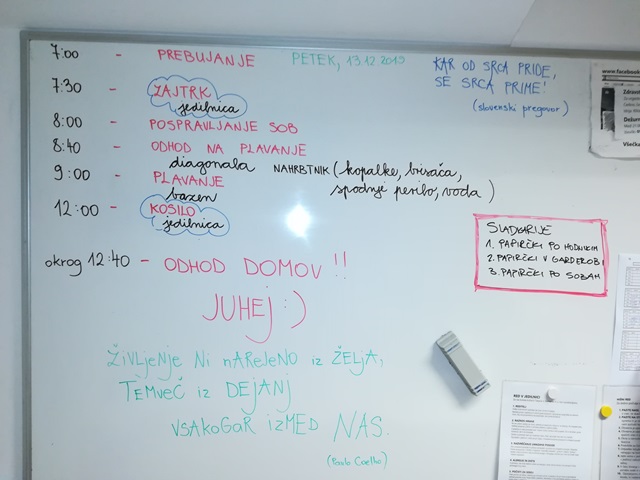 7:00 - PREBUJANJE PETEK, 13.12.2019
7:30 - ZAJTRK
jedilnica
8:00 - POSPRAVLJANJE SOB
8:40 - ODHOD NA PLAVANJE
diagonala NAHRBTNIK (kopalke, brisača,
spodnje perilo, voda)
9:00 - PLAVANJE
bazen
12:00 - KOSILO
jedilnica
okrog 12:40 - ODHOD DOMOV!!
JUHEJ :)
ŽIVLJENJE NI NAREJENO IZ ŽELJA,
TEMVEČ IZ DEJANJ
VSAKOGAR IZMED NAS.
(Paulo Coelho)
KAR OD SRCA PRIDE,
SE SRCA PRIME!
(slovenski pregovor)
SLADKARIJE
1. PAPIRČKI PO HODNIKIH
2. PAPIRČKI V GARDEROBI
3. PAPIRČKI PO SOBAH
www.facebo